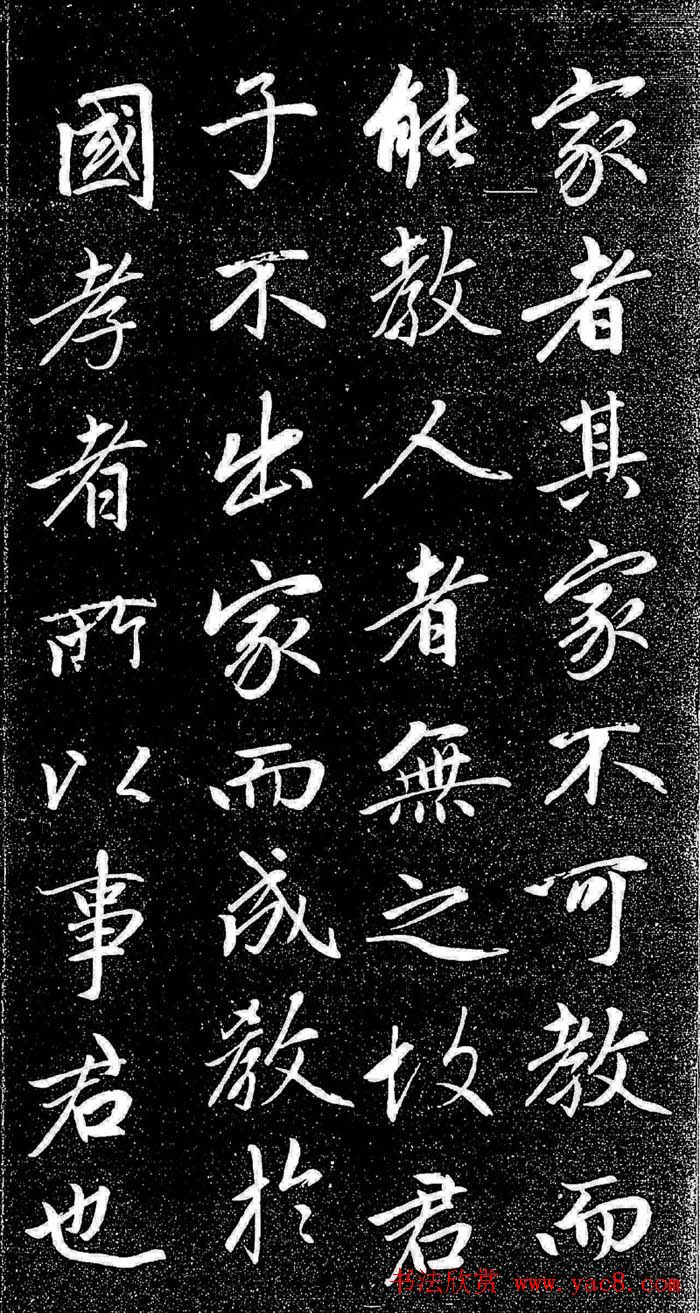 家者其家不可教而
能教人者無之故君
子不出家而成教於
國孝者所以事君也
书法欣赏 www.yac8.com